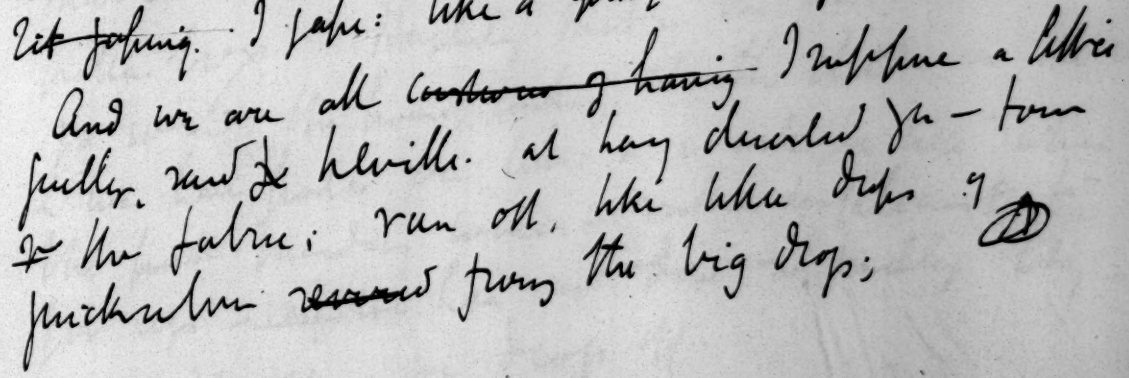 gaping. I gape: like a
And we are all conscious of having I suppose a little
guilty, said Neville. at having deserted you – torn
the fabric; run off, like little drops of
quicksilver from the big drop;